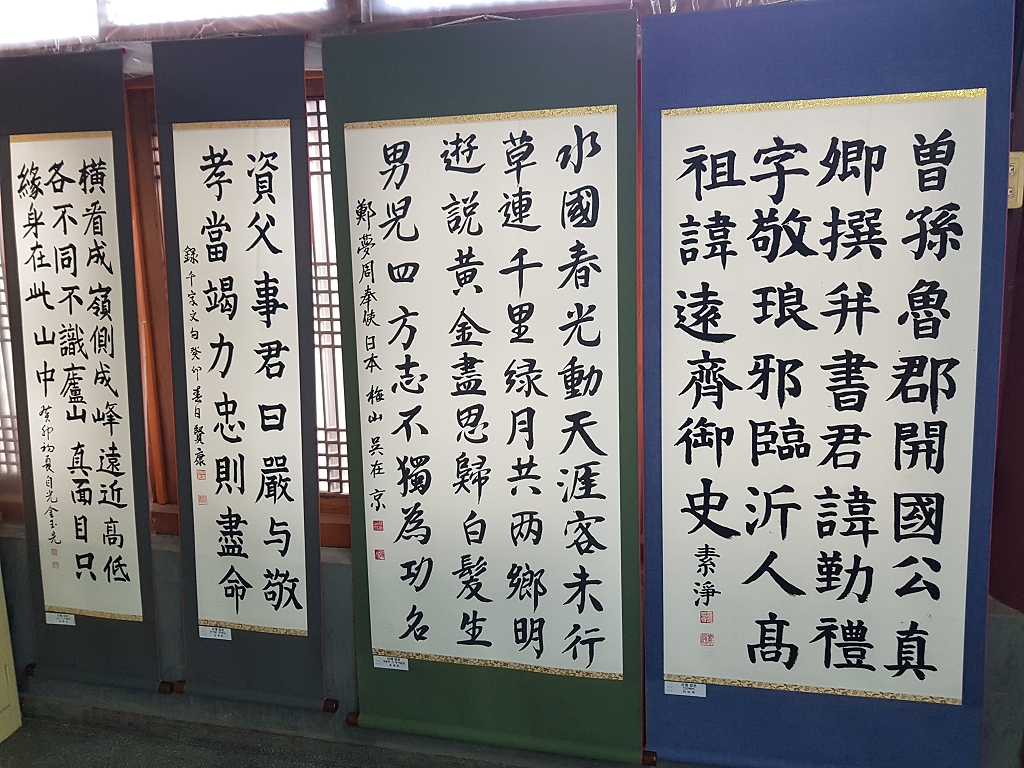 曽孫魯郡開國公真
卿撰并書君諱勤禮
字敬琅邪臨沂人高
祖諱遠齊御史
素淨
水國春光動天涯客未行
草連千里绿月共两鄉明
遊説黄金盡思歸白髮生
男児四方志不獨為功名
鄭夢周奉使日本 梅山 吳在京
資父事君曰嚴与敬
孝當竭力忠則盡命
録千字文句癸卯春日賢康
橫看成嶺側成峰遠近高低
各不同不識廬山真面目只
緣身在此山中
癸卯初夏自光金玉先